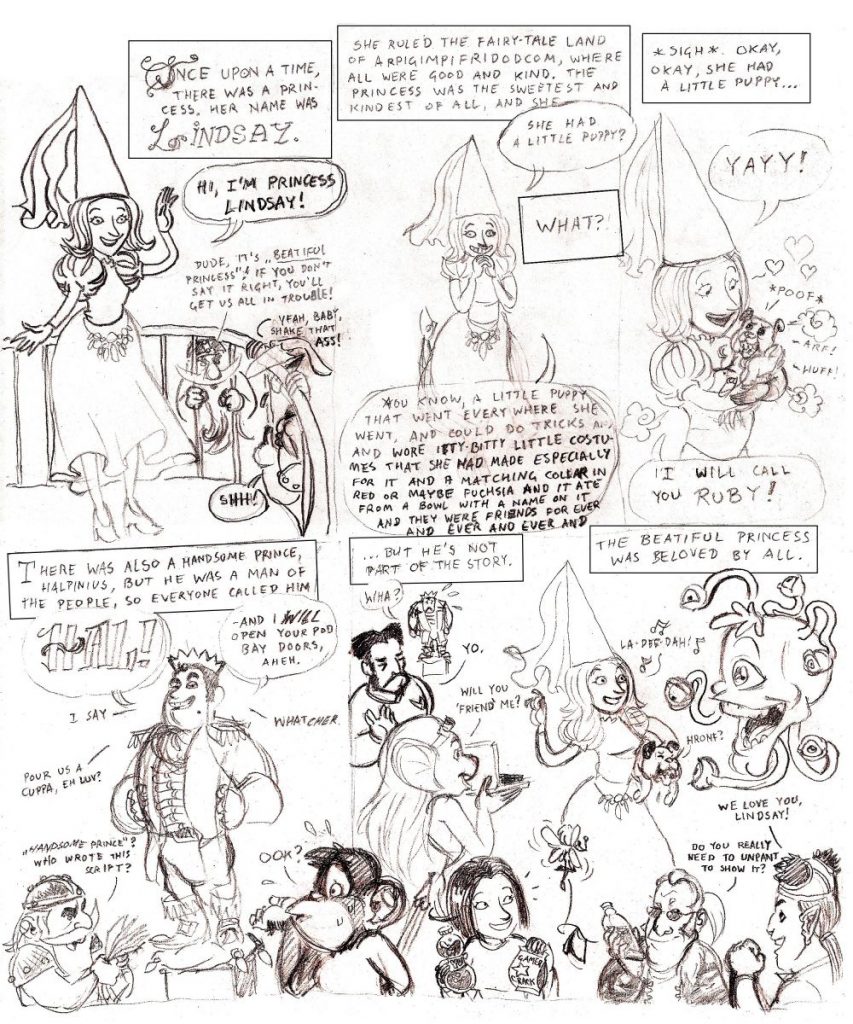 ONCE UPON A TIME,
THERE WAS A PRIN-
CESS. HER NAME WAS
LINDSAY.
HI, I'M PRINCESS
LINDSAY!
DUDE, IT'S „BEATIFUL
PRINCESS"! IF YOU DON'T
SAY IT RIGHT, YOU'LL
GET US ALL IN TROUBLE!
YEAH, BABY,
SHAKE THAT
ASS!
SHH!
SHE RULED THE FAIRY-TALE LAND
OF ARPIGIMPIFRIDODCOM, WHERE
ALL WERE GOOD AND KIND. THE
PRINCESS WAS THE SWEETEST AND
KINDEST OF ALL, AND SHE
SHE HAD
A LITTLE PUPPY?
WHAT?!
YOU KNOW, A LITTLE PUPPY
THAT WENT EVERYWHERE SHE
WENT, AND COULD DO TRICKS AN
AND WORE ITTY-BITTY LITTLE COSTU-
MES THAT SHE HAD MADE ESPECIALLY
FOR IT AND A MATCHING COLLAR IN
RED OR MAYBE FUCHSIA AND IT ATE
FROM A BOWL WITH A NAME ON IT
AND THEY WERE FRIENDS FOR EVER
AND EVER AND EVER AND
*SIGH*. OKAY,
OKAY, SHE HAD
A LITTLE PUPPY...
YAYY!
*POOF*
~ARF!
~HUFF!
I WILL CALL
YOU RUBY!
THERE WAS ALSO A HANDSOME PRINCE,
HALPINIUS, BUT HE WAS A MAN OF
THE PEOPLE, SO EVERYONE CALLED HIM
HAL!
-AND I WILL
OPEN YOUR POD
BAY DOORS,
AHEH.
I SAY
WHATCHER.
POUR US A
CUPPA, EH LUV?
„HANDSOME PRINCE"?
WHO WROTE THIS
SCRIPT?
...BUT HE'S NOT
PART OF THE STORY.
WHA?
YO.
WILL YOU
'FRIEND' ME?
OOK?
GAMER
CRACK
THE BEATIFUL PRINCESS
WAS BELOVED BY ALL.
LA-DEE-DAH!
HRONF?
WE LOVE YOU,
LINDSAY!
DO YOU REALLY
NEED TO UNPANT
TO SHOW IT?